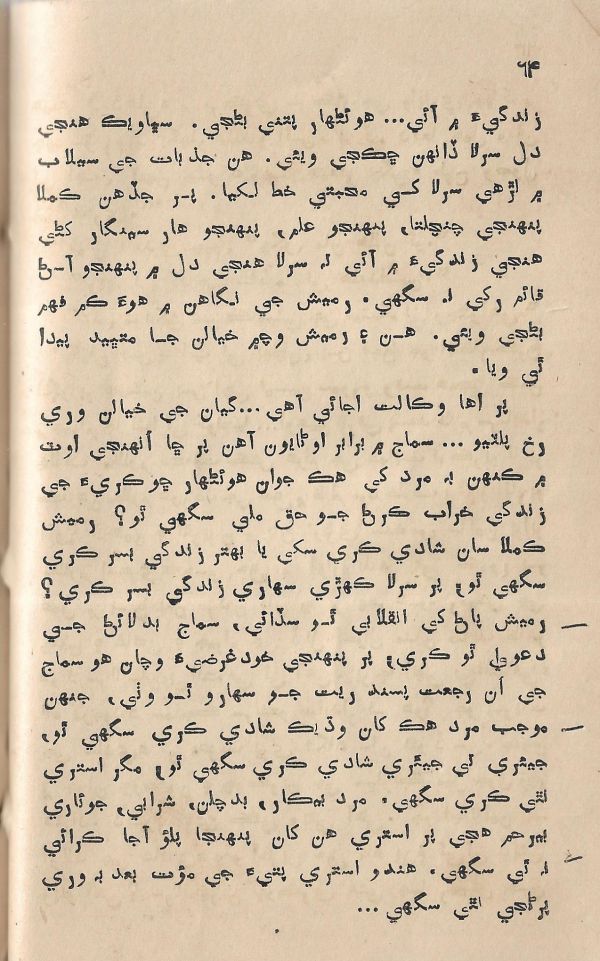 ۶۴
زندگيءَ ۾ آئي... هوئڻهار پتني بڻجي. سڀاويڪ هنجي
دل سرلا ڏانهن ڇڪجي ويئي. هن جذبات جي سيلاب
۾ لڙهي سرلا کي محبتي خط لکيا. پر جڏهن ڪملا
پنهنجي چنچلتا، پنهنجو علم، پنهنجو هار سينگار کڻي
هنجي زندگيءَ ۾ آئي تہ سرلا هنجي دل ۾ پنهنجو آسڻ
قائم رکي نہ سگهي. رميش جي نگاهن ۾ هوءَ ڪم فهم
بڻجي ويئي. هن ۽ رميش وچ۾ خيالن جا متڀيد پيدا
ٿي ويا.
پر اها وڪالت اجائي آهي...گيان جي خيالن وري
رخ پلٽيو... سماج ۾ برابر اوڻايون آهن پر ڇا اُنهنجي اوٽ
۾ ڪنهن بہ مرد کي هڪ جوان هوئڻهار ڇوڪريءَ جي
زندگي خراب ڪرڻ جو حق ملي سگهي ٿو؟ رميش
ڪملا سان شادي ڪري سکي يا بهتر زندگي بسر ڪري
سگهي ٿو، پر سرلا ڪهڙي سهاري زندگي بسر ڪري؟
رميش پاڻ کي انقلابي ٿو سڏائي، سماج بدلائڻ جي
دعويٰ ٿو ڪري، پر پنهنجي خودغرضيءَ وچان هو سماج
جي اُن رجعت پسند ريت جو سهارو ٿو وٺي، جنهن
موجب مرد هڪ کان وڌيڪ شادي ڪري سگهي ٿو،
جيئري ئي جيئري شادي ڪري سگهي ٿو، مگر استري
نٿي ڪري سگهي. مرد بيڪار، بدچلن، شرابي، جوئاري
بيرحم هجي پر استري هن کان پنهنجا پلؤ آجا ڪرائي
نہ ٿي سگهي. هندو استري پتيءَ جي مؤت بعد بہ وري
پرڻجي نٿي سگهي...